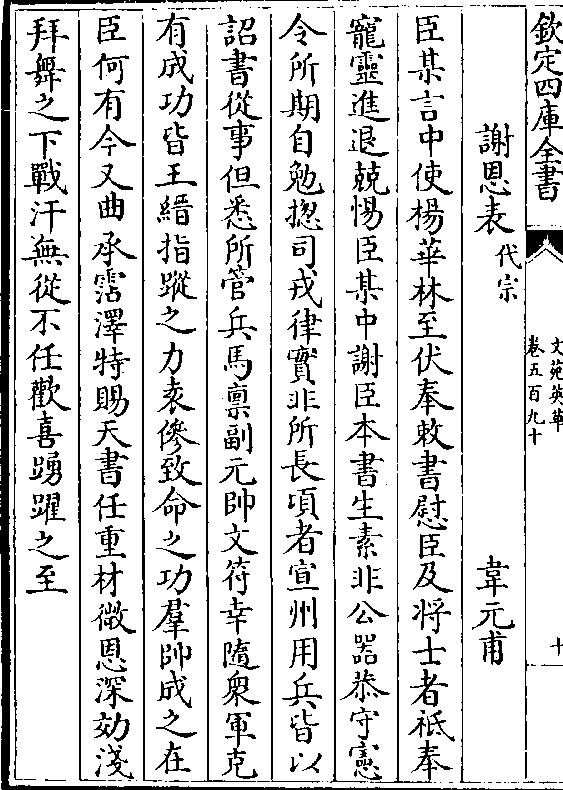 欽定四庫全書
文苑英華
卷五百九十
十
謝恩表代宗　韋元甫
臣某言中使楊華林至伏奉敕書慰臣及將士者祗奉
寵靈進退兢惕臣某中謝臣本書生素非公器恭守憲
令所期自勉揔司戎律實非所長頃者宣州用兵皆以
詔書從事但悉所管兵馬禀副元帥文符幸隨衆軍克
有成功皆王縉指蹤之力袁傪致命之功羣帥成之在
臣何有今又曲承霑澤特賜天書任重材微恩深効淺
拜舞之下戰汗無從不任歡喜踴躍之至